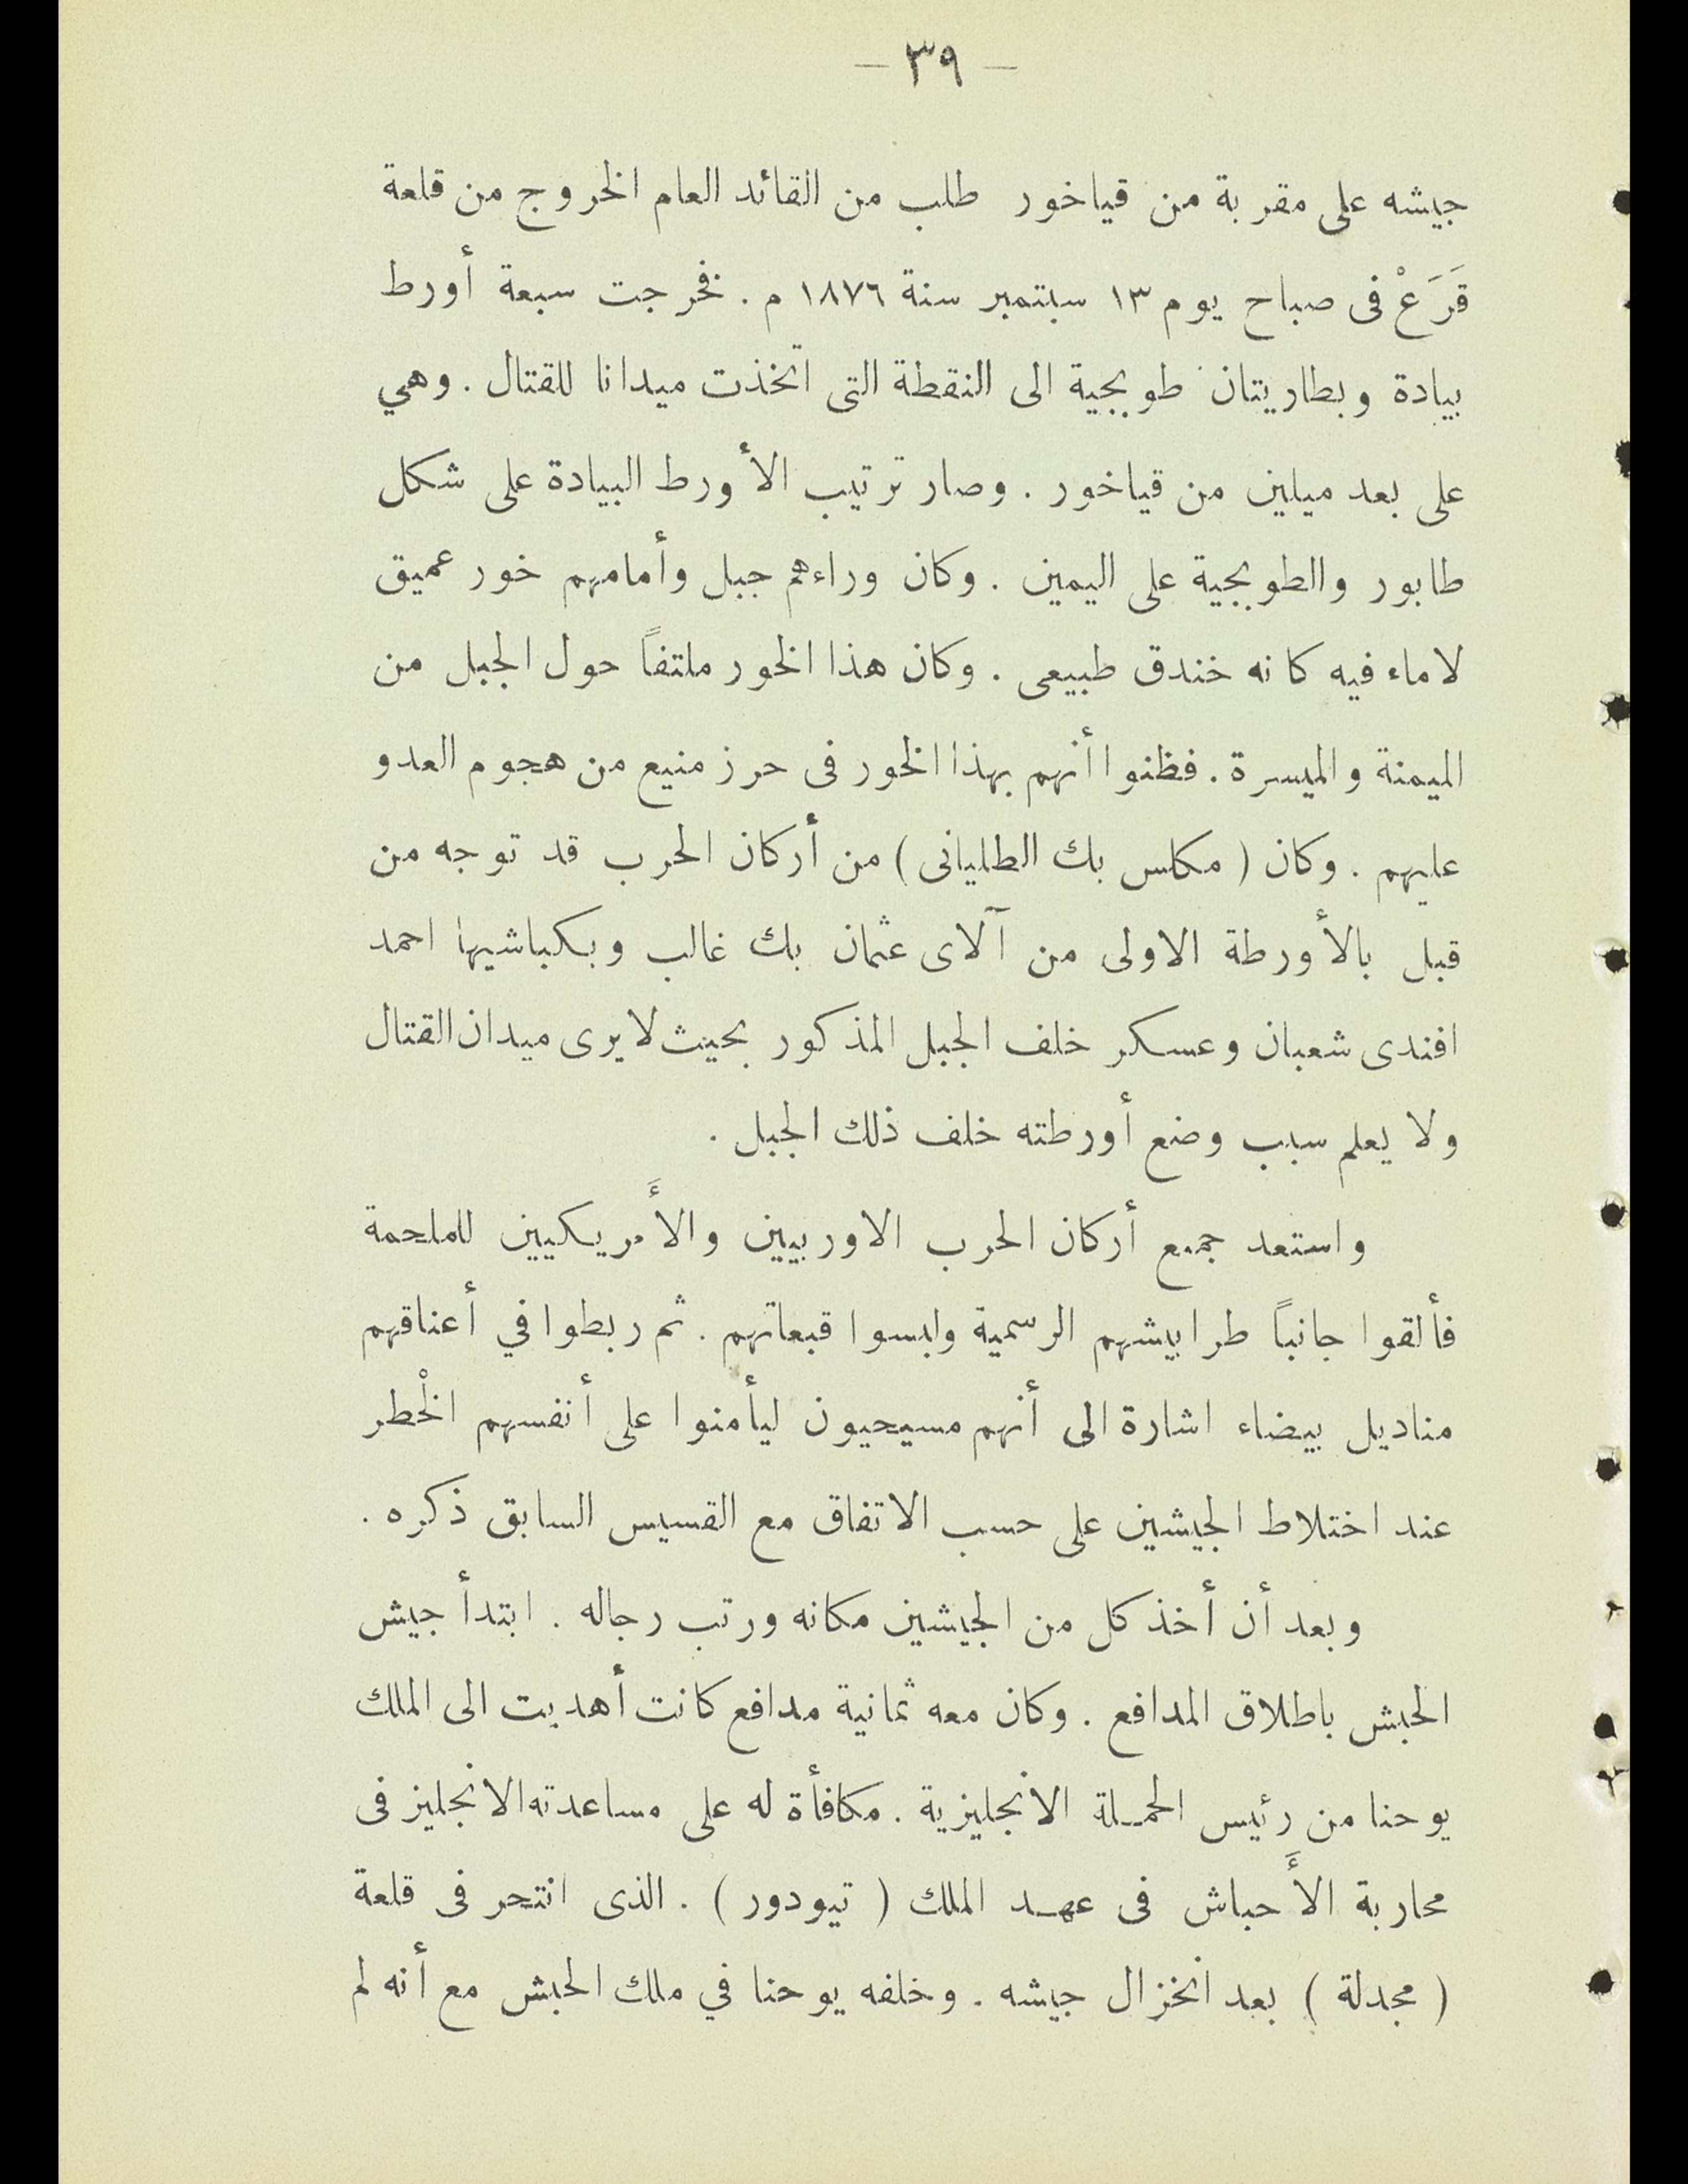 – ٣٩ –
جيشه على مقربة من قياخور طلب من القائد العام الخروج من قلعة
قَرَعْ فى صباح يوم ١٣ سبتمبر سنة ١٨٧٦ م . فخرجت سبعة أورط
بيادة وبطاريتان طوبجية الى النقطة التى اتخذت ميدانا للقتال . وهي
على بعد ميلين من قياخور . وصار ترتيب الأورط البيادة على شكل
طابور والطوبجية على اليمين . وكان وراءهم جبل وأمامهم خور عميق
لا ماء فيه كانه خندق طبيعى . وكان هذا الخور ملتفاً حول الجبل من
الميمنة والميسرة . فظنوا أنهم بهذا الخور فى حرز منيع من هجوم العدو
عليهم . وكان ( مكاس بك الطليانى ) من أركان الحرب قد توجه من
قبل بالأورطة الاولى من آلاى عثمان بك غالب وبكباشيها احمد
افندى شعبان وعسكر خلف الجبل المذكور بحيث لا يرى ميدان القتال
ولا يعلم سبب وضع أورطته خلف ذلك الجبل .
واستعد جميع أركان الحرب الاوربيين والأَمريكيين للملحمة
فألقوا جانباً طرابيشهم الرسمية ولبسوا قبعاتهم . ثم ربطوا في أعناقهم
مناديل بيضاء اشارة الى أنهم مسيحيون ليأمنوا على أنفسهم الخْطر
عند اختلاط الجيشين على حسب الاتفاق مع القسيس السابق ذكره .
وبعد أن أخذ كل من الجيشين مكانه ورتب رجاله . ابتدأ جيش
الحبش باطلاق المدافع . وكان معه ثمانية مدافع كانت أهديت الى الملك
يوحنا من رئيس الحمـلة الانجليزية . مكافأة له على مساعدته الانجليز فى
محاربة الأَحباش فى عهـد الملك ( تيودور ) . الذى انتحر فى قلعة
( مجدلة ) بعد انخزال جيشه . وخلفه يوحنا في ملك الحبش مع أنه لم